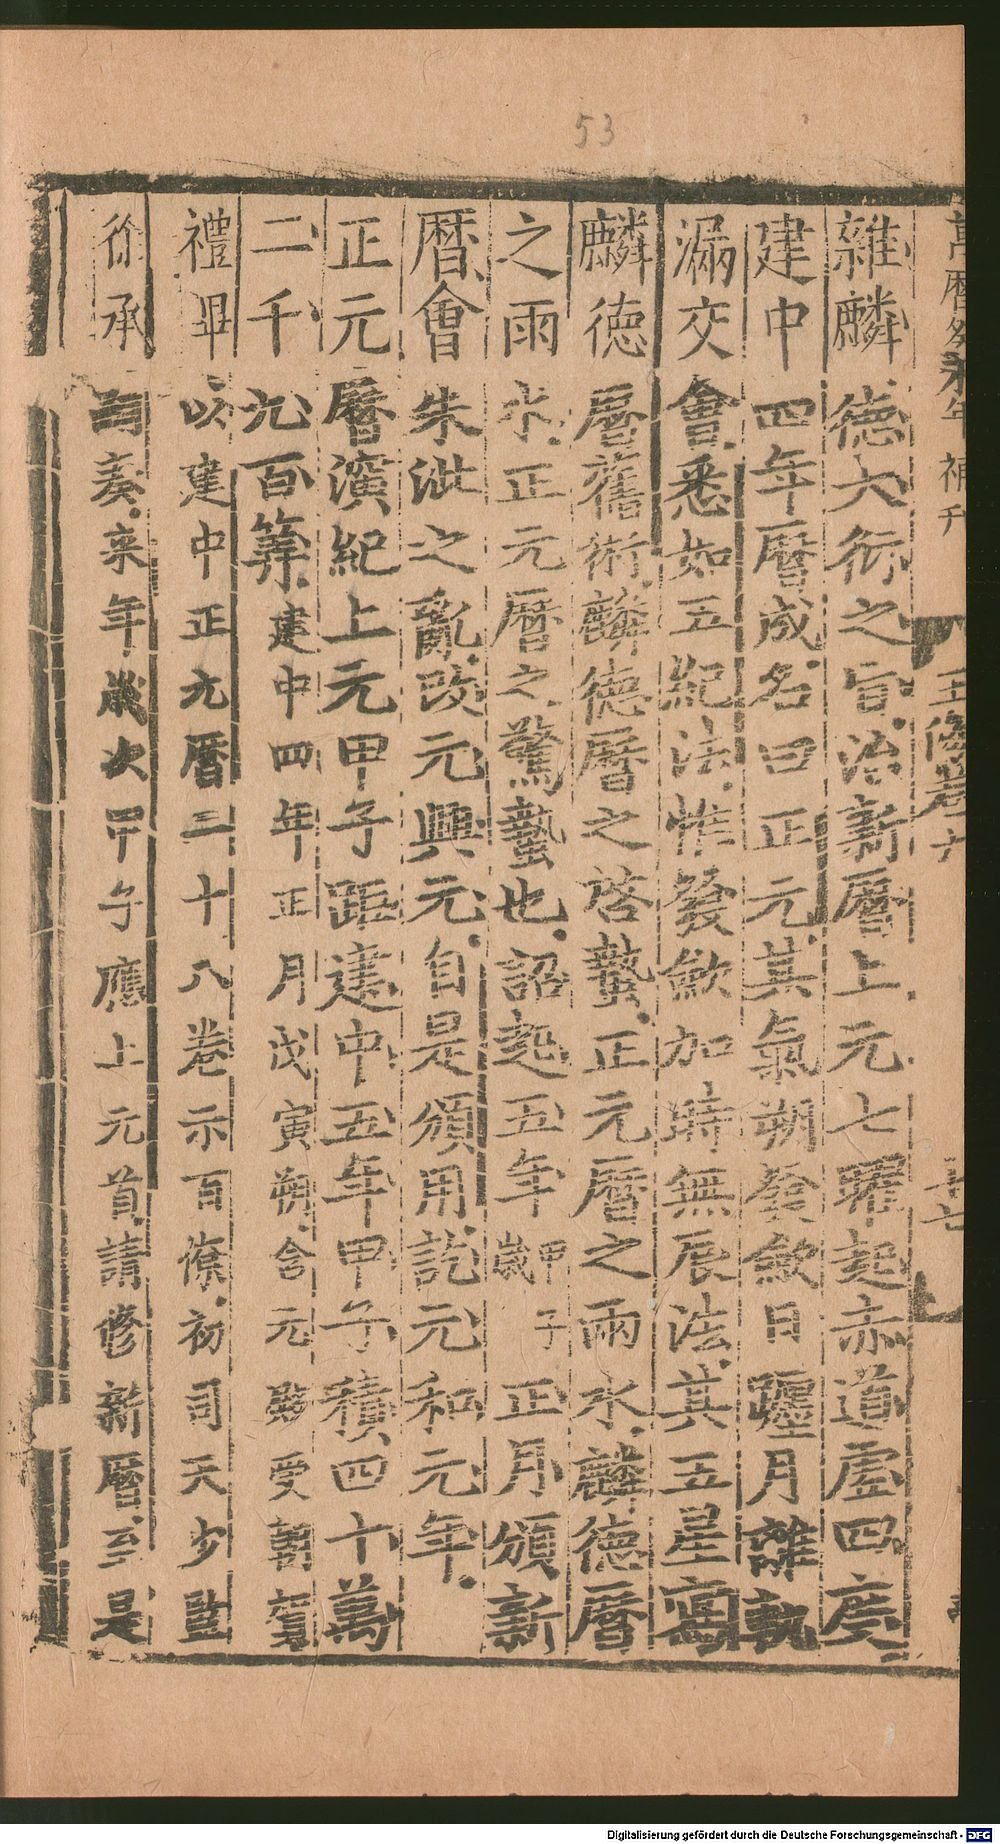 53
雜麟德大衍之旨治新曆上元七曜起赤道虛四度
建中四年曆成名曰正元其氣朔發斂日躔月離軌
漏交會悉如五紀法惟發斂加時無辰法其五星寫
麟德曆舊術麟德曆之啓蟄正元曆之雨水麟德曆
之雨水正元曆之驚蟄也詔起五年甲子歲正月頒新
曆會朱泚之亂改元興元自是頒用訖元和元年
正元曆演紀上元甲子距建中五年甲子積四十萬
二千九百算建中四年正月戊寅朔含元殿受朝賀
禮畢以建中正元曆三十八卷示百僚初司天少監
徐承嗣奏來年歲次甲子應上元首請修新曆至是
萬曆 年補刊
玉海卷
Digitalisierung gefördert durch die Deutsche Forschungsgemeinschaft - DFG